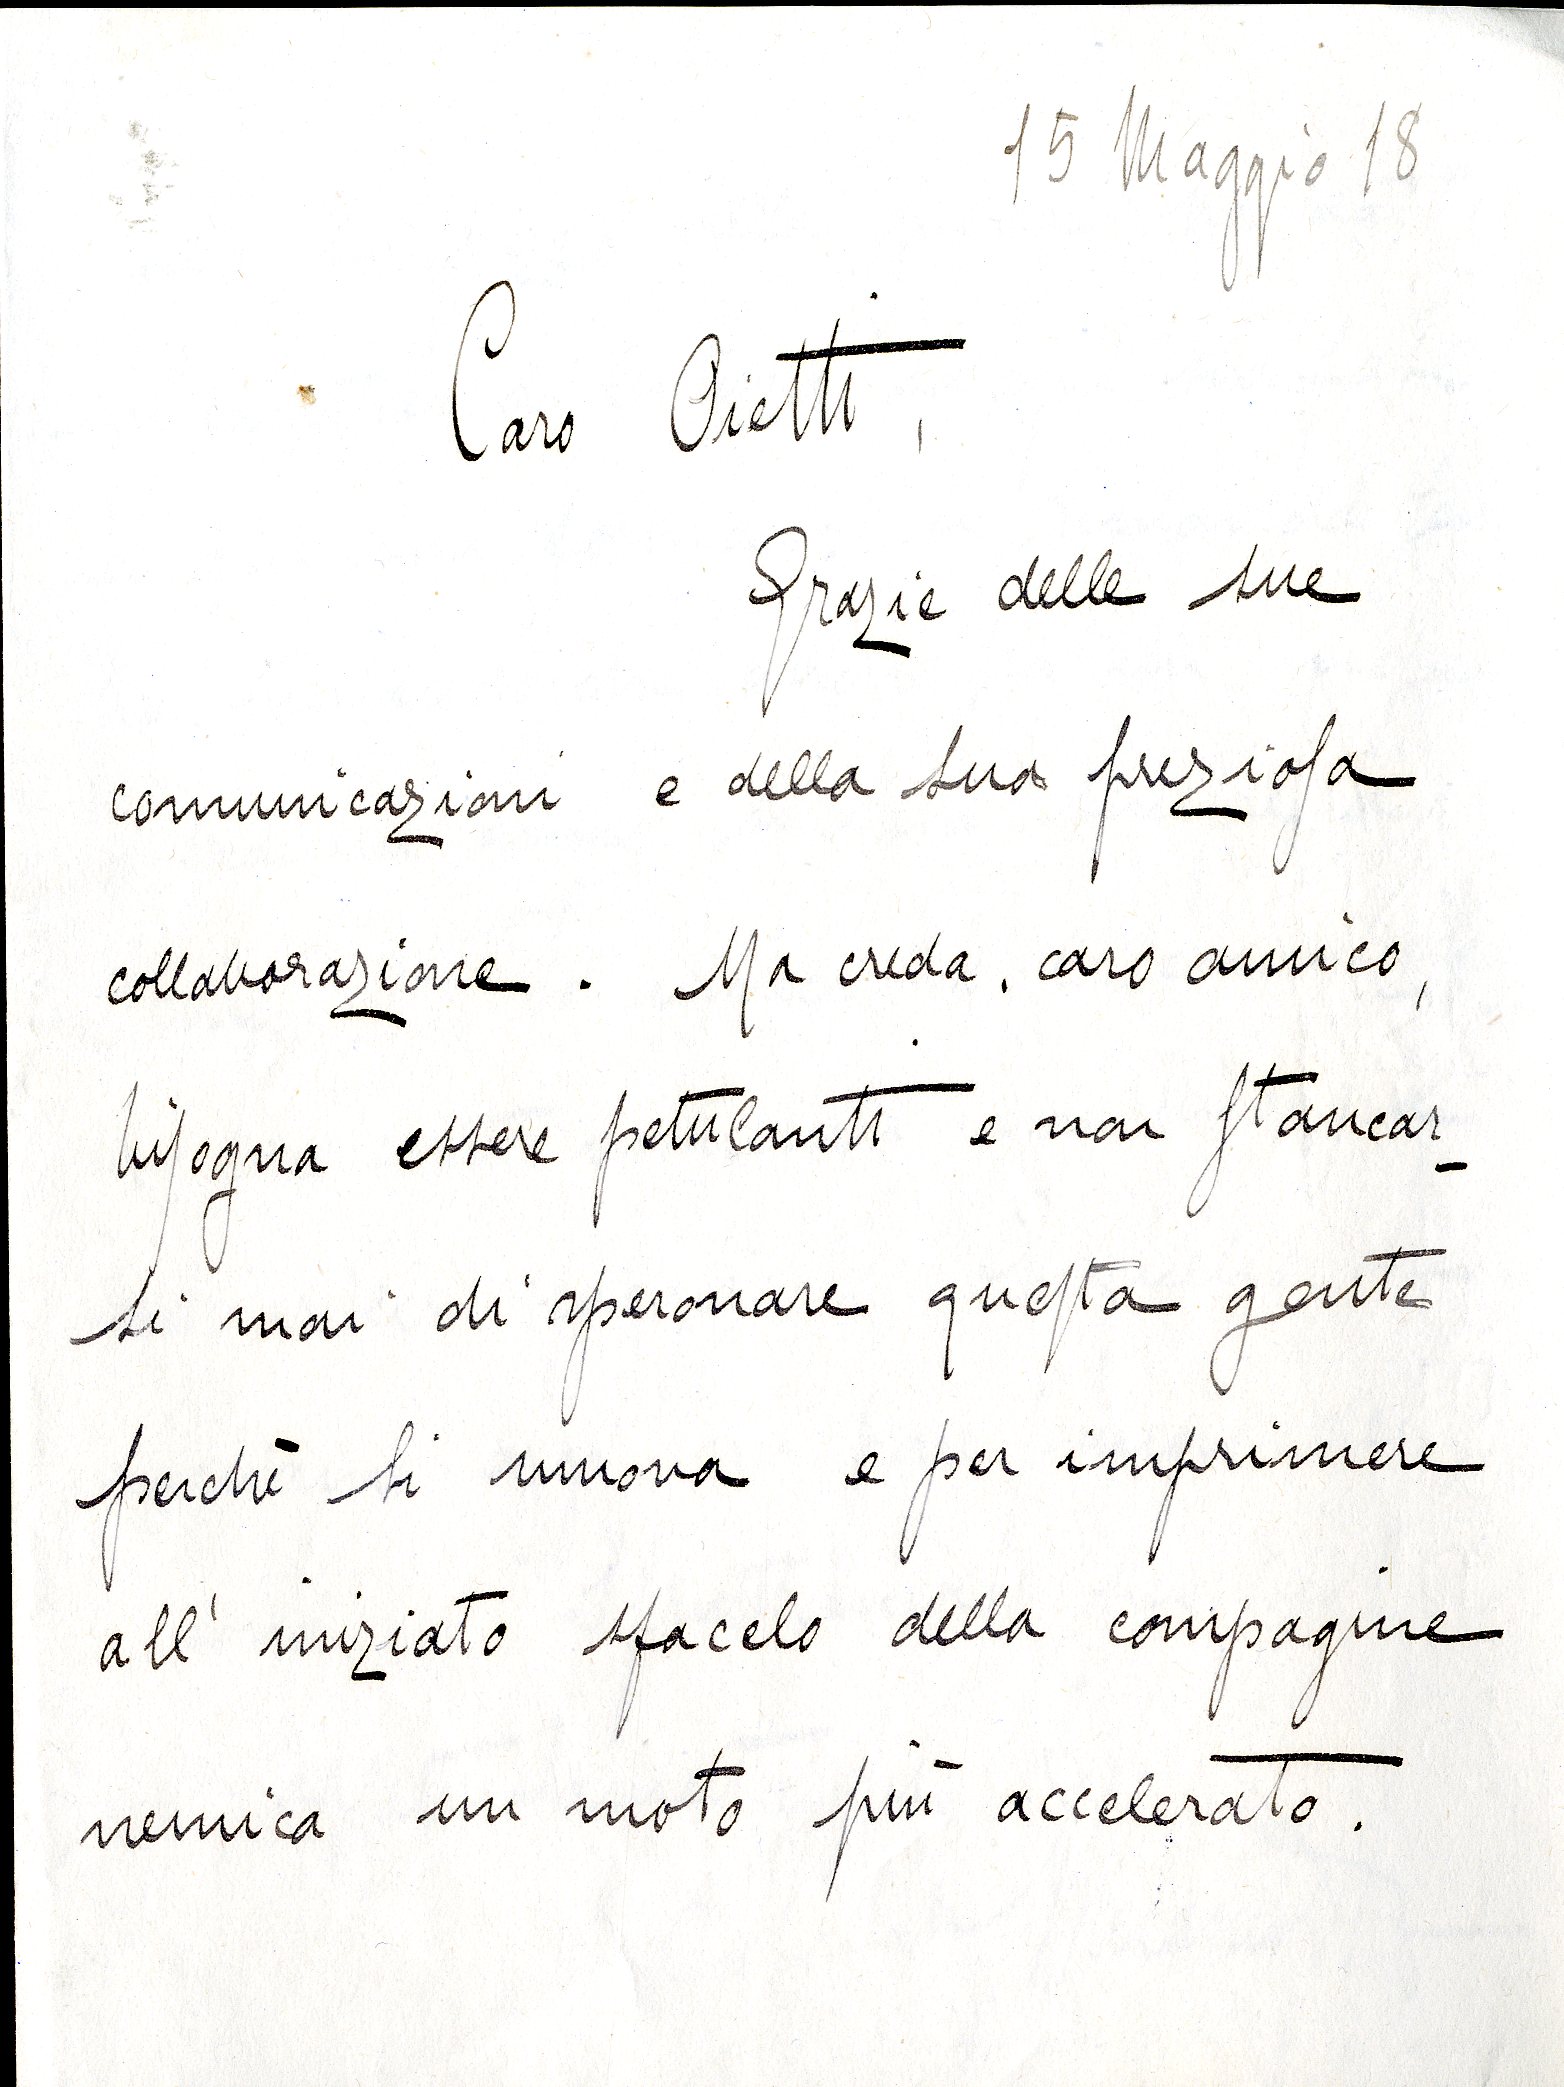 15 Maggio 18
Caro Oietti,
Grazie delle sue
comunicazioni e della sua preziosa
collaborazione. Ma creda, caro amico,
bisogna essere petulanti e non stancar-
si mai di speronare questa gente
perchè si muova e per imprimere
all'iniziato sfacelo della compagine
nemica un moto più accelerato.